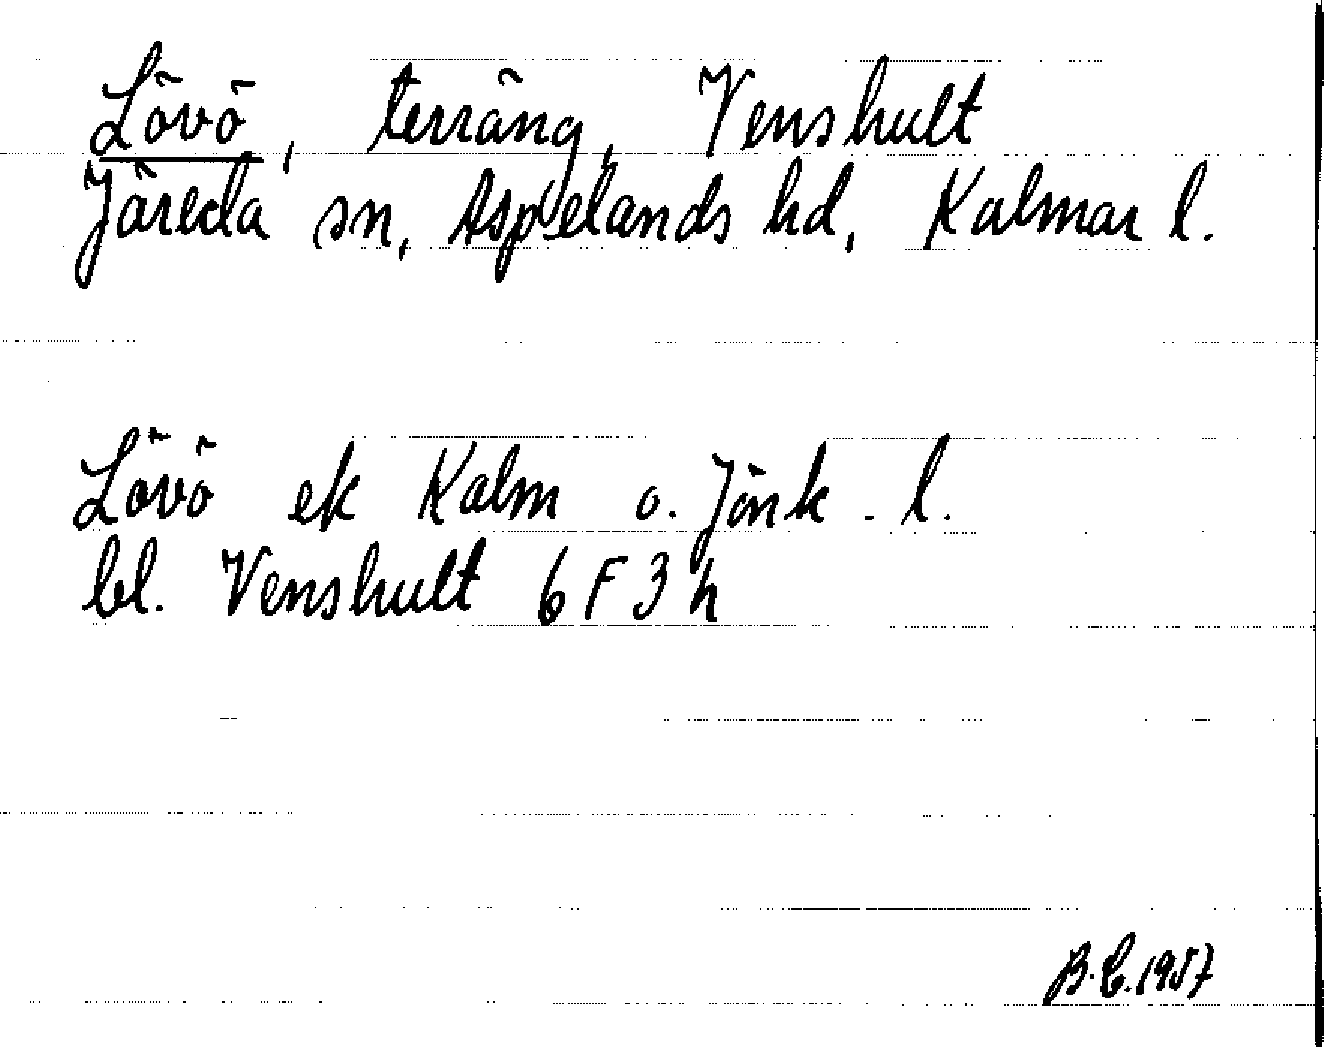 Lövö, terräng, Venshult
Järeda sn, Aspelands hd, Kalmar l.
Lövö ek Kalm o. Jönk. l.
bl. Venshult 6F3h
B.E. 1957